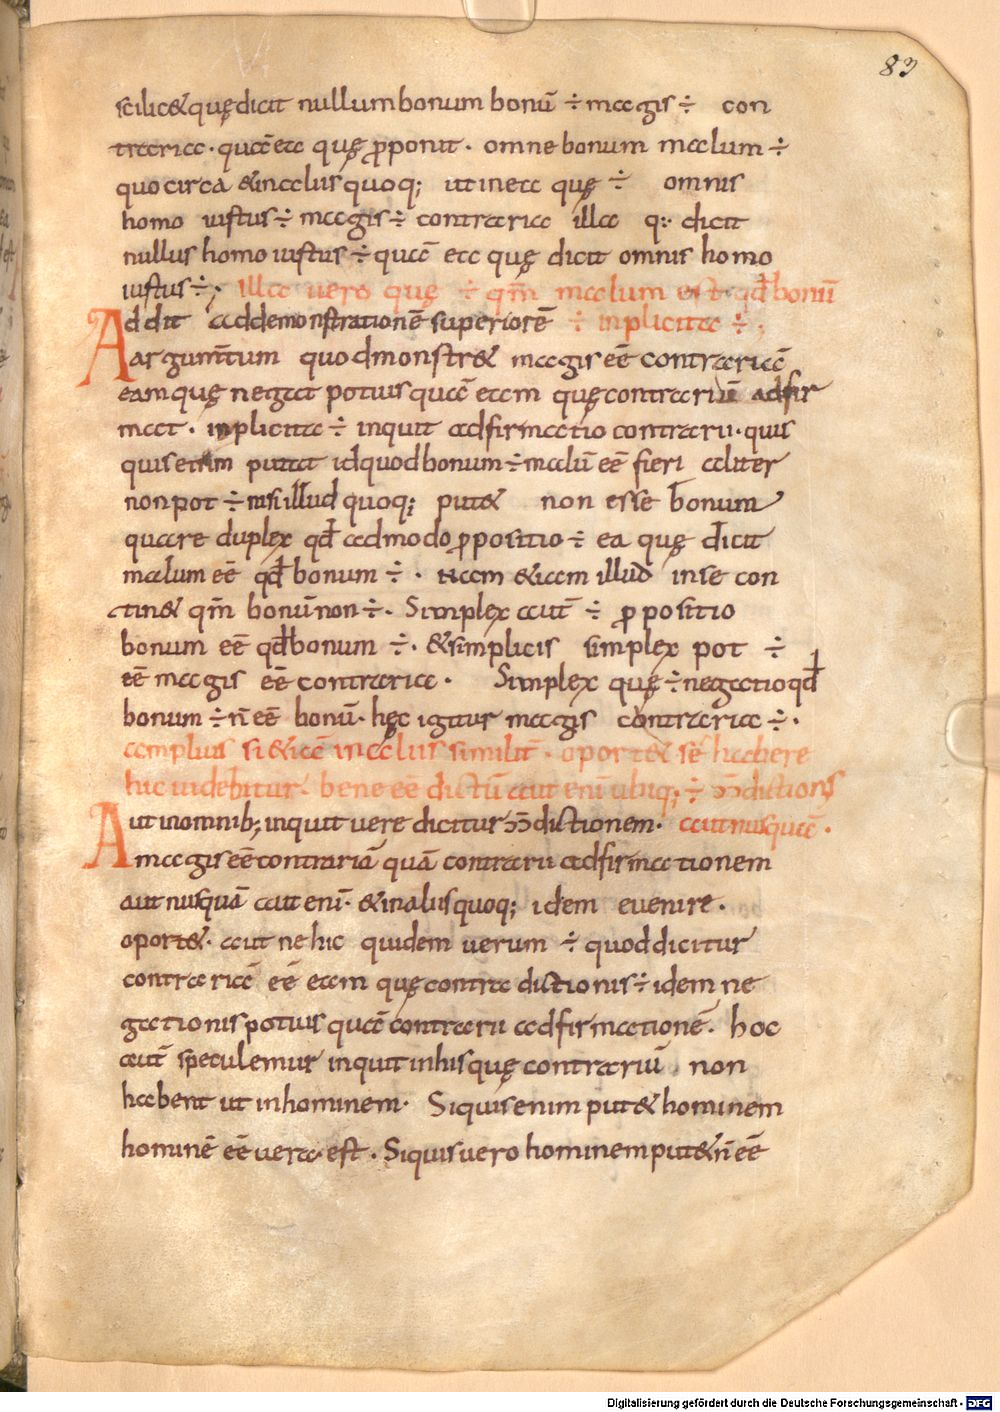 83
scilic& quę dicit nullum bonum bonū ÷ magis ÷ con
traria · quā ea quę ꝓponit · omne bonum malum ÷
quo circa & in aliis quoq; ut in ea quę ÷ omnis
homo iustus ÷ magis ÷ contraria illa q: dicit
nullus homo iustus ÷ quā ea quę dicit omnis homo
iustus ÷ ; illa vero quę ÷ qm̄ malum est qđ bonū
Addit ad demonstrationē superiorē ÷ inplicita ÷ ;
argum̄tum quo dmonstr& magis eē contrariā
eam quę negat potius quā eam quę contrariū adfir
mat · inplicita ÷ inquit adfirmatio contrarii · quis
quis enim putat id quod bonum ÷ malū eē fieri aliter
non pot ÷ nisi illud quoq; put& non esse bonum
quare duplex qđ admodo ꝓpositio ÷ ea quę dicit
malum eē qđ bonum ÷ · nam & iam illud in se con
tin& qm̄ bonū non ÷ · Simplex aut̄ ÷ ꝓpositio
bonum eē qđ bonum ÷ · & simplicis simplex pot ÷
eē magis eē contraria · Simplex quę ÷ negatio qđ
bonum ÷ n̄ eē bonū · hęc igitur magis contraria ÷ ·
amplius si & iā in aliis similit̄ · oport& sē habere
hic videbitur · bene eē dictū aut enī ubiq; ÷ ↄ̄dictionis
Aut in omnib; inquit vere dicitur ↄ̄dictionem · aut nusquā ·
magis eē contrariā quā contrarii adfirmationem
aut nusquā aut enī · & in aliis quoq; idem evenire ·
oport& · aut ne hic quidem verum ÷ quod dicitur
contrariā eē eam quę contra dictionis ÷ idem ne
gationis potius quā contrarii adfirmationē · hoc
aut̄ speculemur inquit in his quę contrariū non
habent ut in hominem · Si quis enim put& hominem
hominē eē vera est · Si quis vero hominem put& n̄ eē
Digitalisierung gefördert durch die Deutsche Forschungsgemeinschaft - DFG